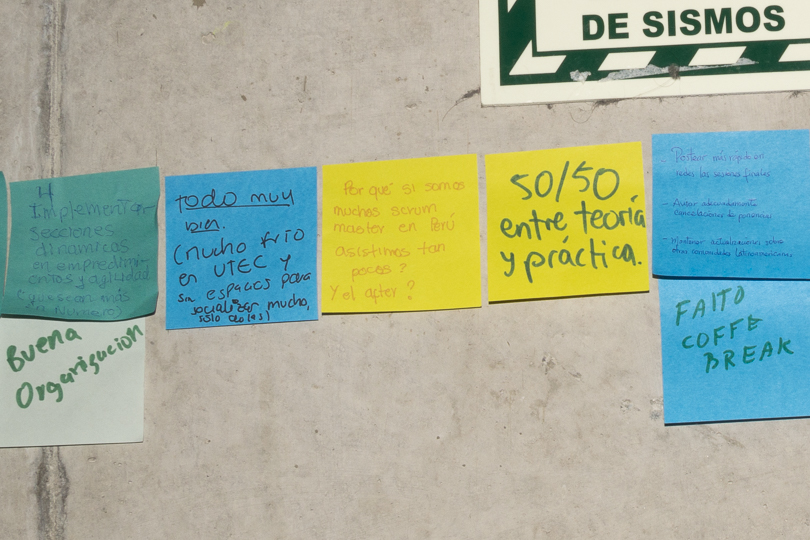 DE SISMOS
Implementar
secciones
dinamicas
en emprendimi
entos y agilidad
Buena
Organizacion
todo muy
bien.
(mucho frío
en UTEC y
sin espacios para
socializar mucho,
sólo
Por qué si somos
muchos scrum
master en Perú
asistimos tan
pocos?
Y el after?
50/50
entre teoría
y práctica.
- Postear más rápido en
redes las sesiones finales
- Avisar
cancelaciones de ponencias
- Mantener
otras comunidades latinoamericanas
FALTO
COFFE
BREAK